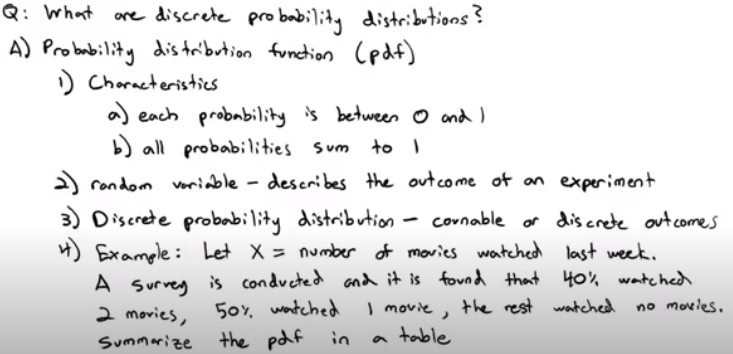 Q: What are discrete probability distributions?
A) Probability distribution function (pdf)
1) Characteristics
a) each probability is between 0 and 1
b) all probabilities sum to 1
2) random variable - describes the outcome of an experiment
3) Discrete probability distribution - counable or discrete outcomes
4) Example: Let X = number of movies watched last week.
A survey is conducted and it is found that 40% watched
2 movies, 50% watched 1 movie, the rest watched no movies.
Summarize the pdf in a table